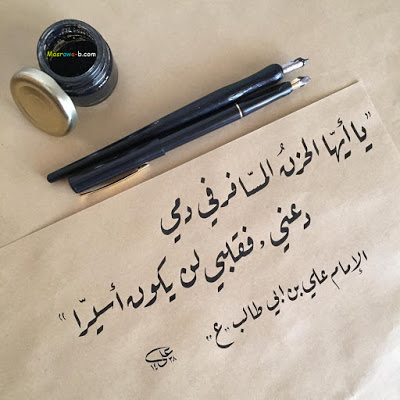 Masrawa-b.com
"يا أيّها الحزنُ المسّافر في دمي
دعني، فقلبي لن يكون أسيرًا"
الإمام علي بن ابي طالب "ع"
علي
١٤٣٨